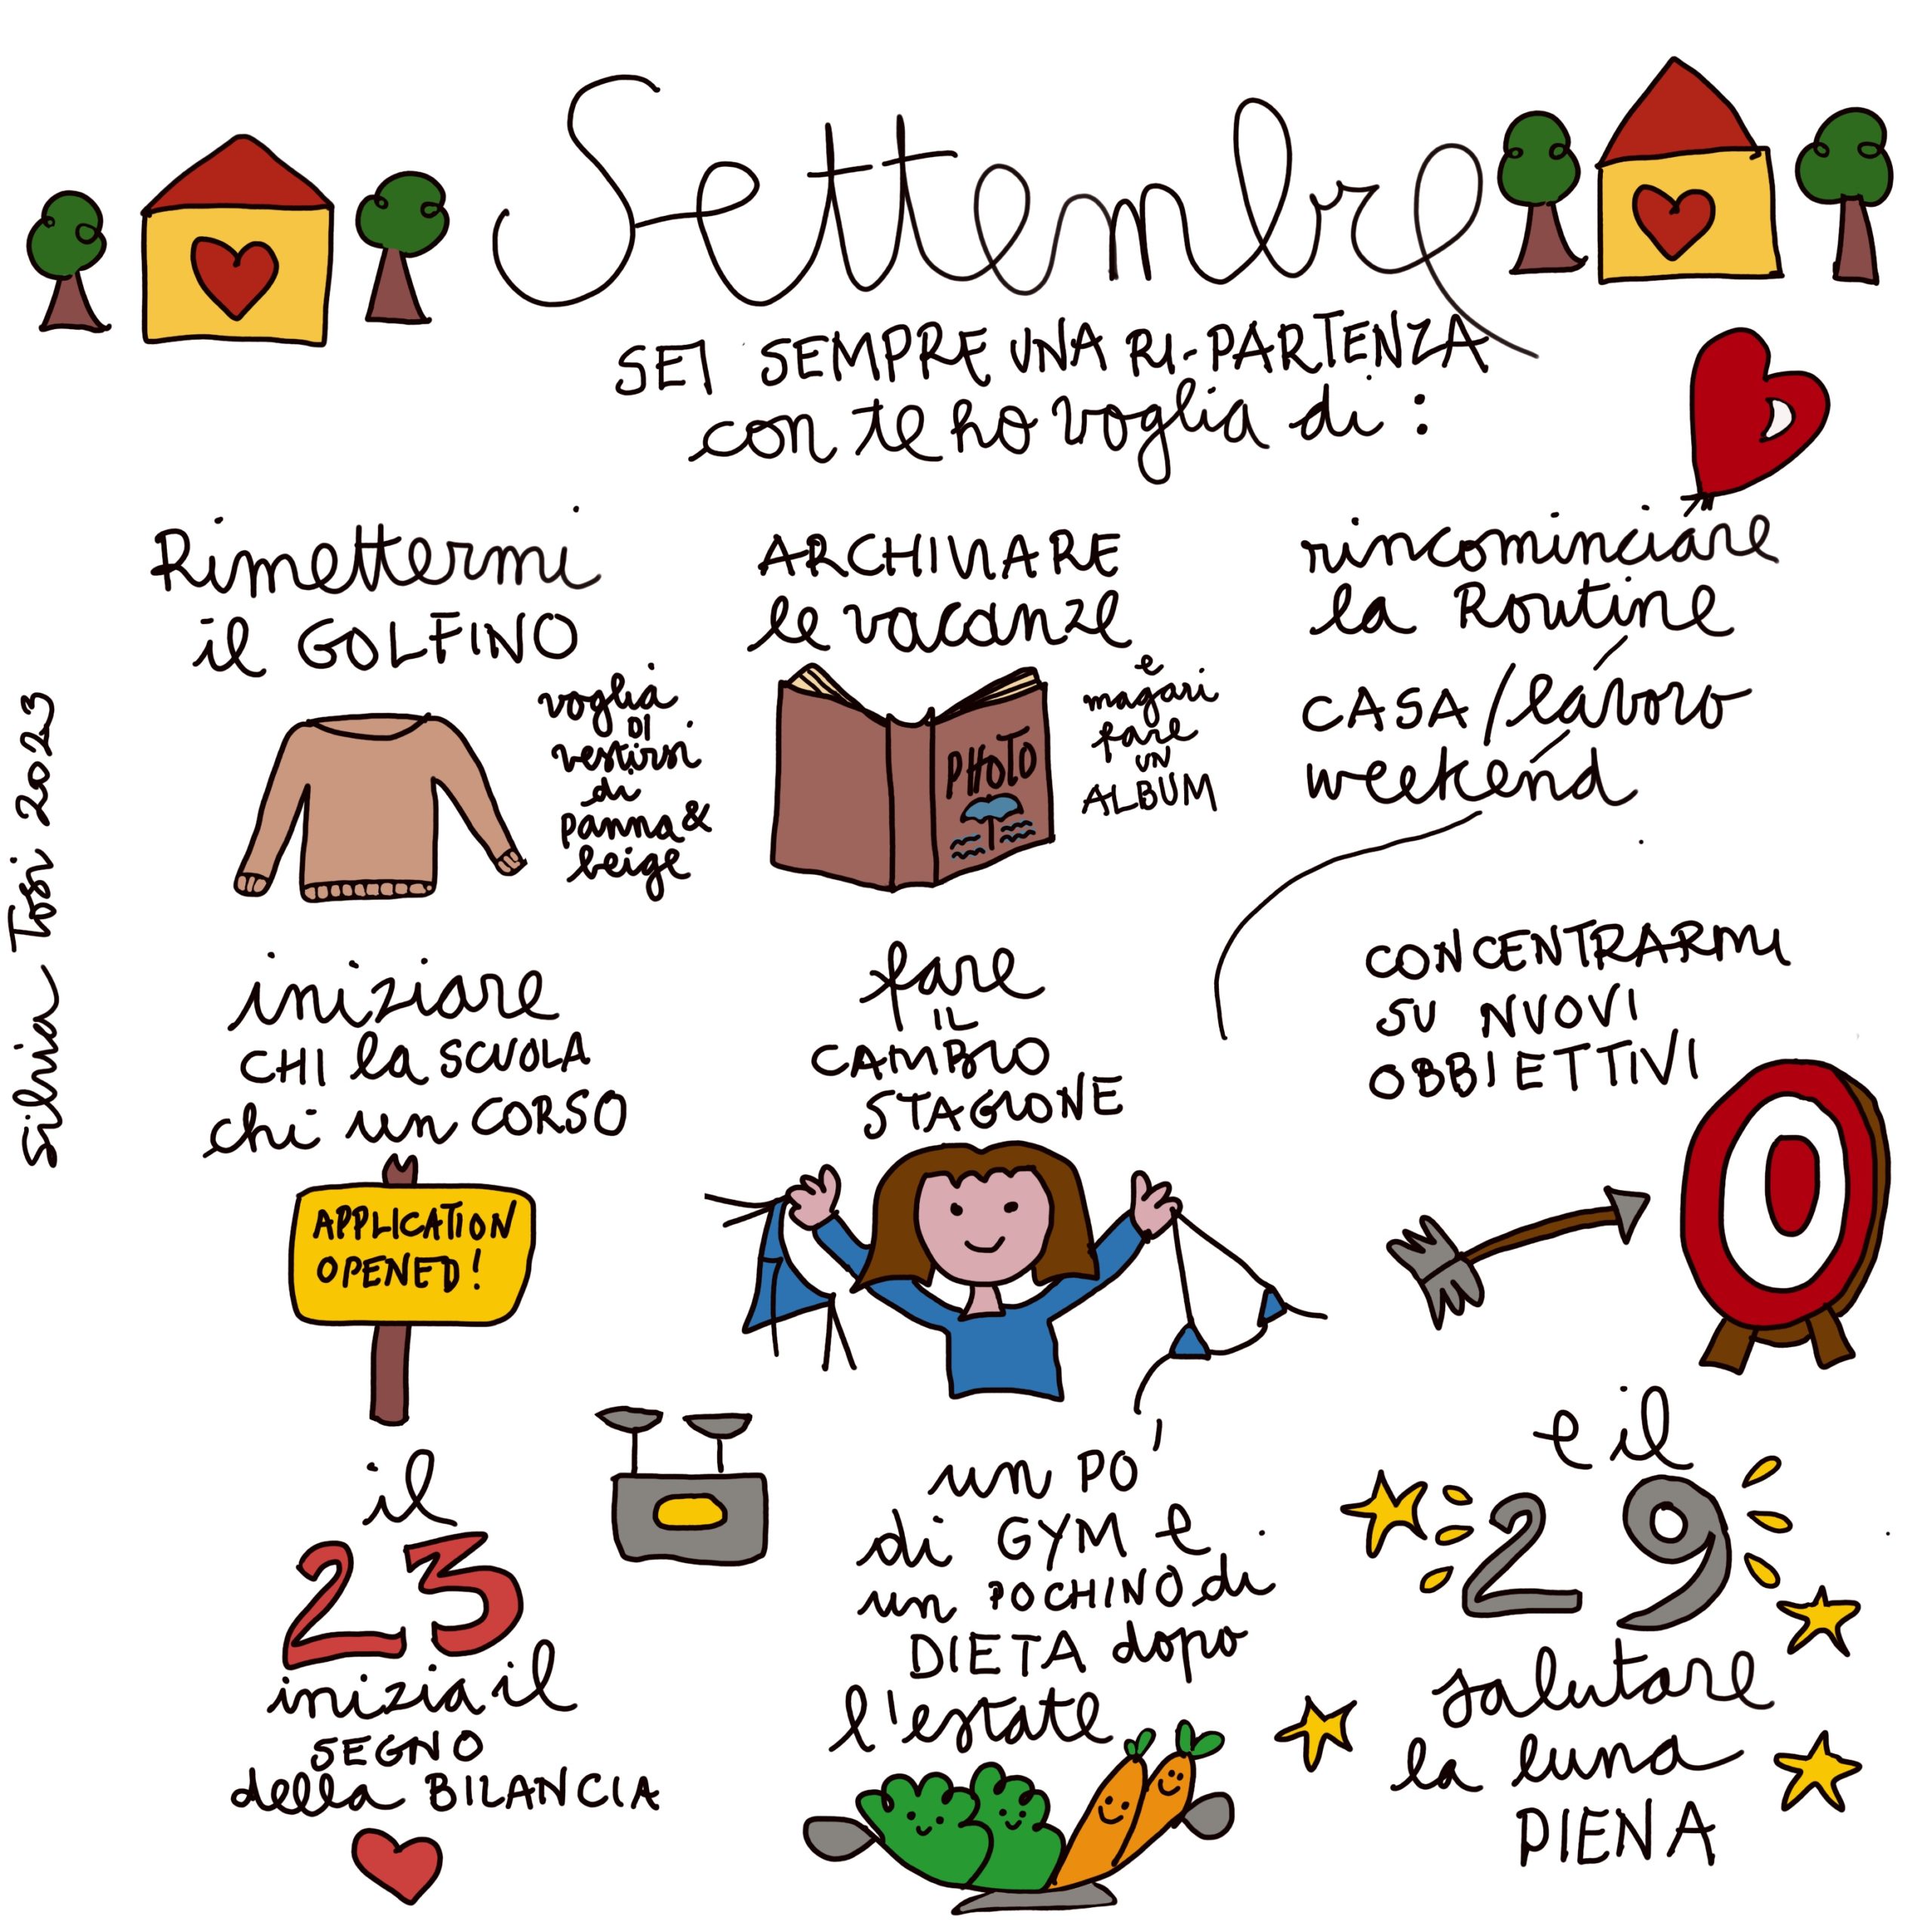 Settembre
SEI SEMPRE UNA RI-PARTENZA
con te ho voglia di:
Rimettermi
il GOLFINO
voglia
DI
vestirsi
di
panna &
beige
ARCHIVIARE
le vacanze
e
magari
fare
UN
ALBUM
PHOTO
rincominciare
la Routine
CASA/lavoro
weekend
iniziare
CHI la SCUOLA
chi un CORSO
APPLICATION
OPENED!
fare
IL
CAMBIO
STAGIONE
CONCENTRARMI
SU NUOVI
OBBIETTIVI
il
23
inizia il
SEGNO
della BILANCIA
un PO'
di GYM e
un POCHINO di
DIETA dopo
l'estate
e il
29
salutare
la luna
PIENA
Silvia Tosi 2023